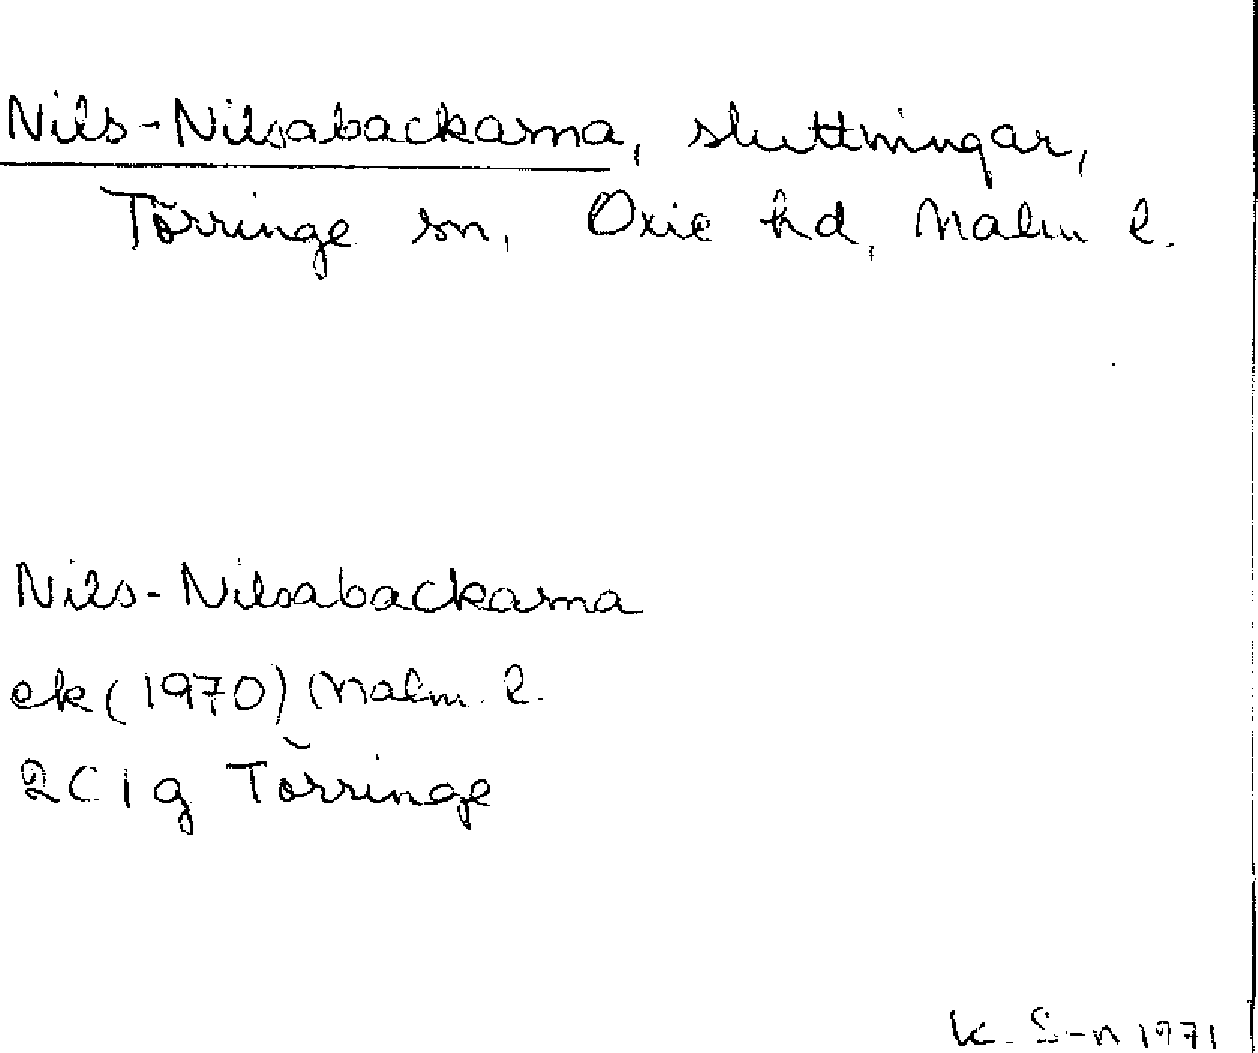 Nils-Nilsabackarna, sluttningar,
Törringe sn, Oxie hd, Malm l.
Nils-Nilsabackarna
ek (1970) Malm. l.
2C 1g Törringe
K. S-n 1971